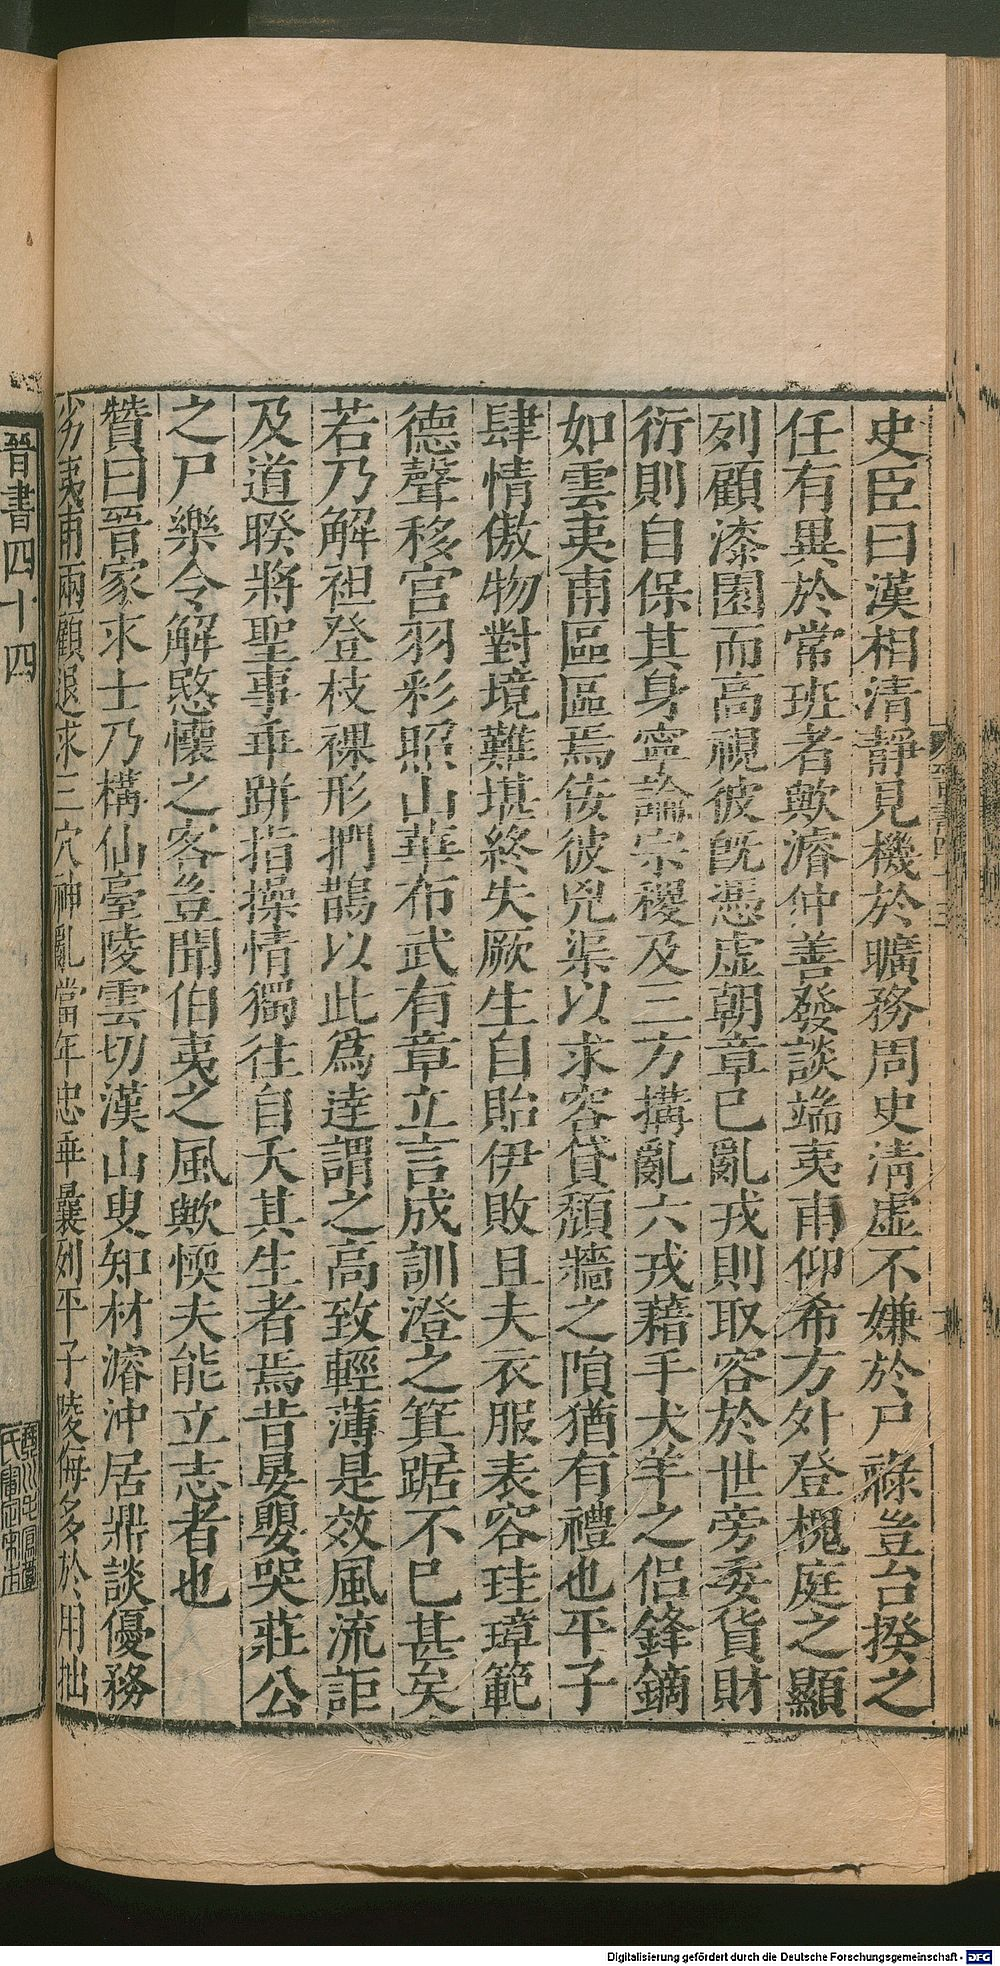 史臣曰漢相清靜見機於曠務周史清虛不嫌於尸祿豈台揆之
任有異於常班者歟濬仲善發談端夷甫仰希方外登槐庭之顯
列顧漆園而高視彼旣憑虛朝章已亂戎則取容於世旁委貨財
衍則自保其身寧論宗稷及三方搆亂六戎藉手犬羊之侶鋒鏑
如雲夷甫區區焉佞彼兇渠以求容貸頹牆之隕猶有禮也平子
肆情傲物對境難堪終失厥生自貽伊敗且夫衣服表容珪璋範
德聲移宮羽彩照山華布武有章立言成訓澄之箕踞不已甚矣
若乃解袒登枝裸形捫鵲以此爲達謂之高致輕薄是效風流詎
及道睽將聖事乖跰指操情獨往自夭其生者焉昔晏嬰哭莊公
之尸樂令解愍懷之客豈聞伯夷之風歟懦夫能立志者也
贊曰晉家求士乃構仙臺陵雲切漢山叟知材濬沖居鼎談優務
劣夷甫兩顧退求三穴神亂當年忠乖曩列平子陵侮多於用拙
晉書四十四
Digitalisierung gefördert durch die Deutsche Forschungsgemeinschaft - DFG